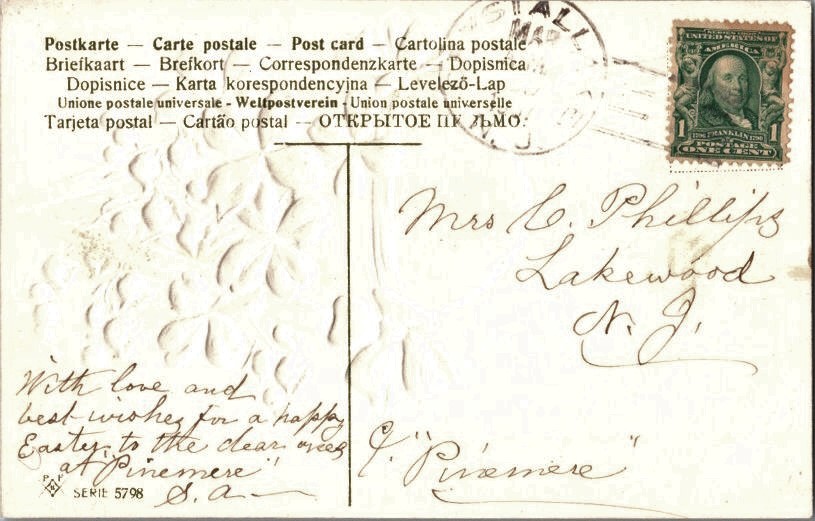 Postkarte — Carte postale — Post card — Cartolina postale
Briefkaart — Brefkort — Correspondenzkarte — Dopisnica
Dopisnice — Karta korespondencyjna — Levelező-Lap
Unione postale universale - Weltpostverein - Union postale universelle
Tarjeta postal — Cartão postal — ОТКРЫТОЕ ПИСЬМО.
MAR
N. J.
SERIES 1902
UNITED STATES OF
AMERICA
1 1706 FRANKLIN 1790 1
POSTAGE
ONE CENT
Mrs C. Phillips
Lakewood
N. J.
"Pinemere"
With love and
best wishes for a happy
Easter, to the dear ones
at "Pinemere"
S. A —
P F
SERIE 5798